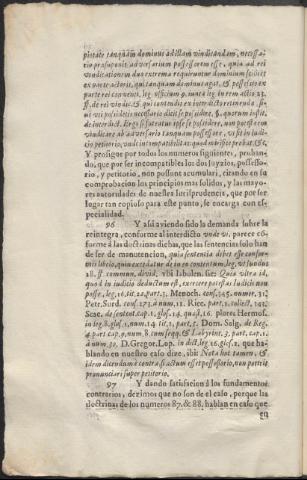 pietate tanquam dominus ad istam vindicandam, necessa-
rio præsuponit adversarium possessorem esse, quia ad rei
vindicationem duo extrema requiruntur dominium scilicet
ex parte actoris, qui tanquam dominus agat, & possessio ex
parte rei conventi, leg. officium 9. iuncta leg. in rem actio 23.
ff. de rei vindic. & qui contendis ex interdicto retinenda,
uti possidetis necessario dicit se possidere, §. quorum bonorum
de interdict. Ergo si fatetur ipse se possidere, non potest rem
vindicare ab adversario tanquam possessore, visi fit iudi-
tio petitorio, unde incompatibilitas quod nobis probat, &c.
Y prosigue por todos los numeros siguientes, proban-
do, que por ser incompatibles los dos juyzios, possesso-
rio, y petitorio, non possunt acumulari, citando en su
comprobacion los principios mas solidos, y las mayo-
res autoridades de nuestra Iurisprudencia, que por ser
lugar tan copioso para este punto, se encarga con es-
pecialidad.
96 Y assi aviendo sido la demanda sobre la
reintegra, conforme al interdicto unde vi. parece có-
forme à las doctrinas dichas, que las sentencias solo han
de ser de manutencion, quia sententia debet esse confor-
mis libelo, quien expidatur de in eo contentum, leg. ut fundus
18. ff. commun. divid, ubi Iabulen. sic: Quia vltra id,
quod in iuditio deductum est, excedere potestas Iudicis non
posse, leg. 16. tit. 22. part. 3. Menoch. cons. 345. numer. 31.
Petr. Surd. cons. 373. num. 12. Rice. part. 2. collect. 343.
Scac. de sentent. cap. 1. glos. 14. quæst. 16. plores Hermos.
in leg. 8. glos. 1. num. 14. tit. 1. part. 5. Dom. Salg. de Reg.
4. part. cap. 9. num. 8. cum seqq. & Labyrint. 2. part. cap. 12.
à num. 30. D. Gregor. Lop. in dict. leg. 16. glos. 2. que ha-
blando en nuestro caso dize, ibi: Nota hoc tamen, &
idem dicendum è contra si actum esset possessorio, non poterit
pronunciari super petitorio.
97 Y dando satisfacion à los fundamentos
contrarios, dezimos que no son de el caso, porque las
doctrinas de los numeros 87. & 88. hablan en caso que
en